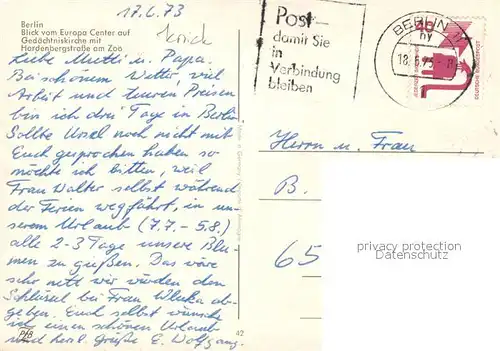 Berlin
Blick vom Europa Center auf
Gedächtniskirche mit
Hardenbergstraße am Zoo
17.6.73
Liebe Mutti u. Papa.
Bei schönem Wetter, viel
Arbeit und teuren Preisen
bin ich drei Tage in Berlin
Sollte Ursel noch nicht mit
Euch gesprochen haben so
möchte ich bitten, weil
Frau Walter selbst während
der Ferien wegfährt, in un-
serem Urlaub (7.7. - 5.8.)
alle 2-3 Tage unsere Blu-
men zu gießen. Das wäre
sehr nett wir würden den
Schlüssel bei Frau ab-
geben. Euch selbst wünsche
ich einen schönen Urlaub
und herzl. Grüße E. Wolfgang.
42
Post-
damit Sie
in
Verbindung
bleiben
BERLIN 11
hy
18.6.73-8
40
DEUTSCHE BUNDESPOST
Herrn u. Frau
B.
65
privacy protection
Datenschutz